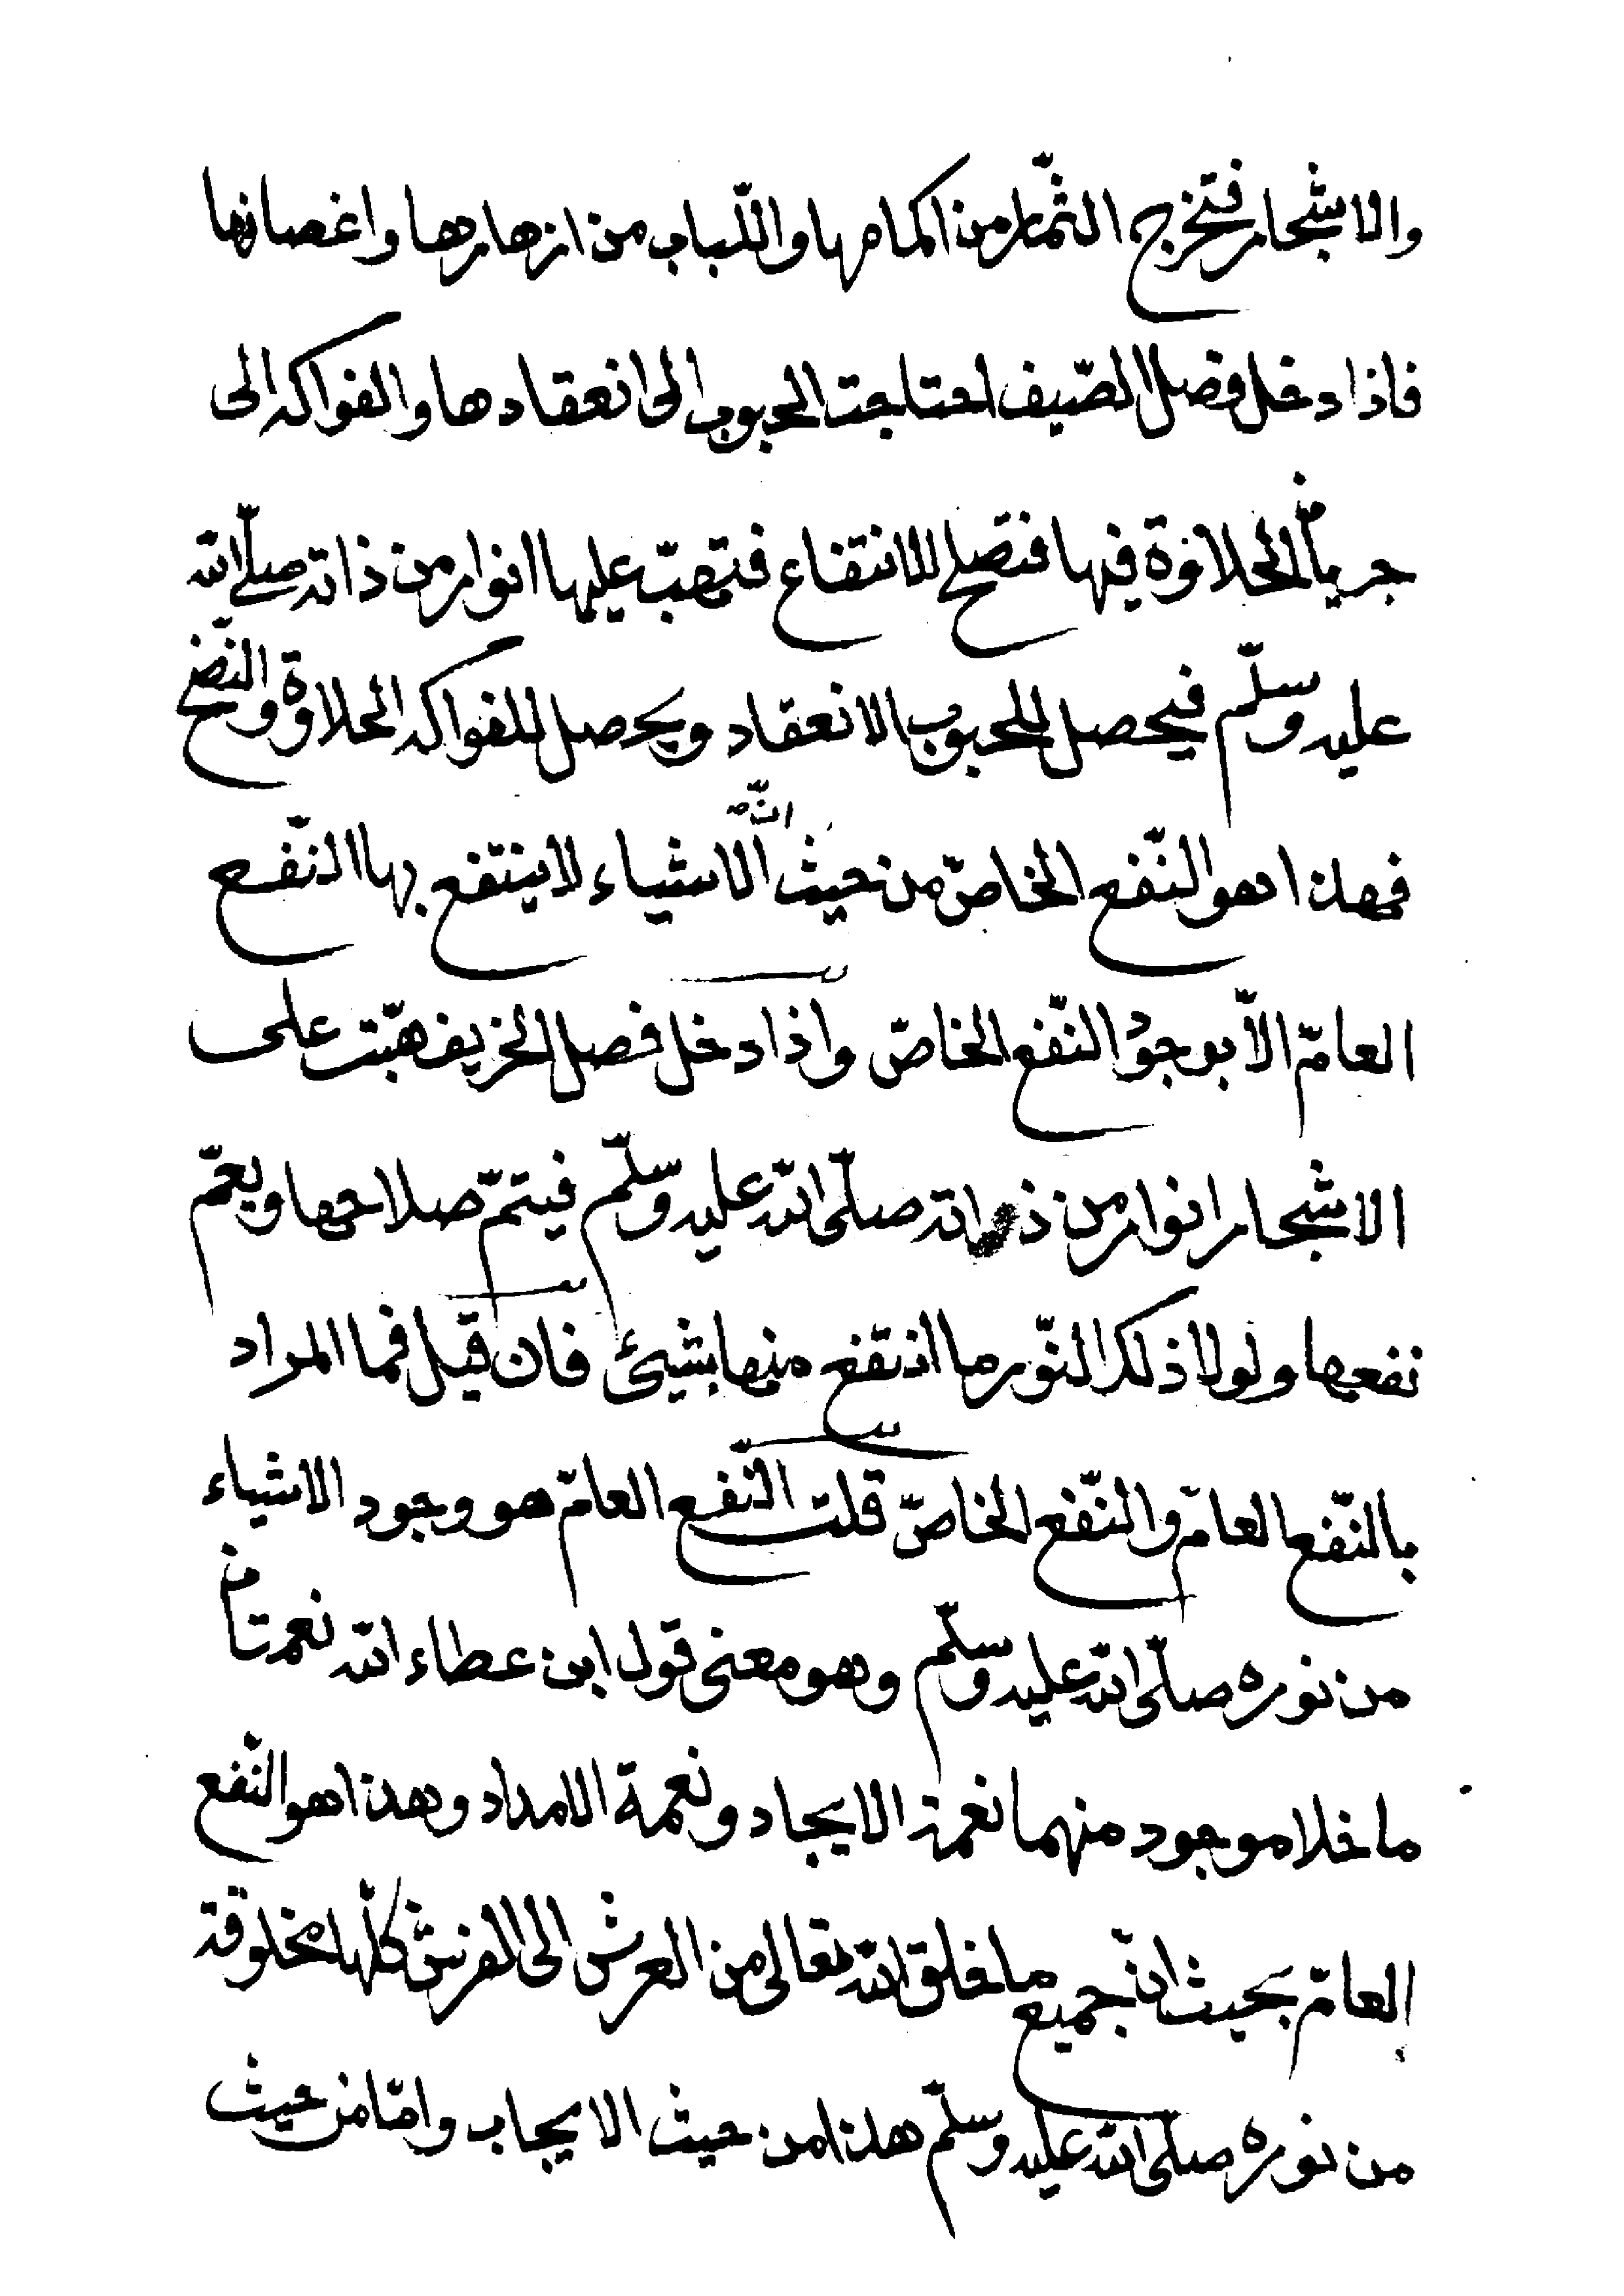 والاشجار فتخرج الثّمار من اكمامها واللّباب من ازهارها واغصانها
فاذا دخل فصل الصّيف احتاجت الحبوب الى انعقادها والفواكه الى
جريان الحلاوة فيها فتصلح للانتفاع فتهبّ عليها انوار من ذاته صلّى الله
عليه وسلّم فيحصل للحبوب الانعقاد ويحصل للفواكه الحلاوة والنّضج
فهذا هو النّفع الخاصّ من حيث انّ الاشياء لا ينتفع بها النّفع
العامّ الاّ بوجود النّفع الخاصّ واذا دخل فصل الخريف هبّت على
الاشجار انوار من ذاته صلّى الله عليه وسلّم فيتمّ صلاحها ويعمّ
نفعها ولولا ذلك النّور ما انتفع منها بشيئ فان قيل فما المراد
بالنّفع العامّ والنّفع الخاصّ قلت النّفع العامّ هو وجود الاشياء
من نوره صلّى الله عليه وسلّم وهو معنى قول ابن عطاء الله نعمتان
ما خلا موجود منهما نعمة الايجاد ونعمة الامداد وهذا هو النّفع
العامّ بحيث انّ جميع ما خلق الله تعالى من العرش الى الفرش كلّها مخلوقة
من نوره صلّى الله عليه وسلّم هذا من حيث الايجاب وامّا من حيث